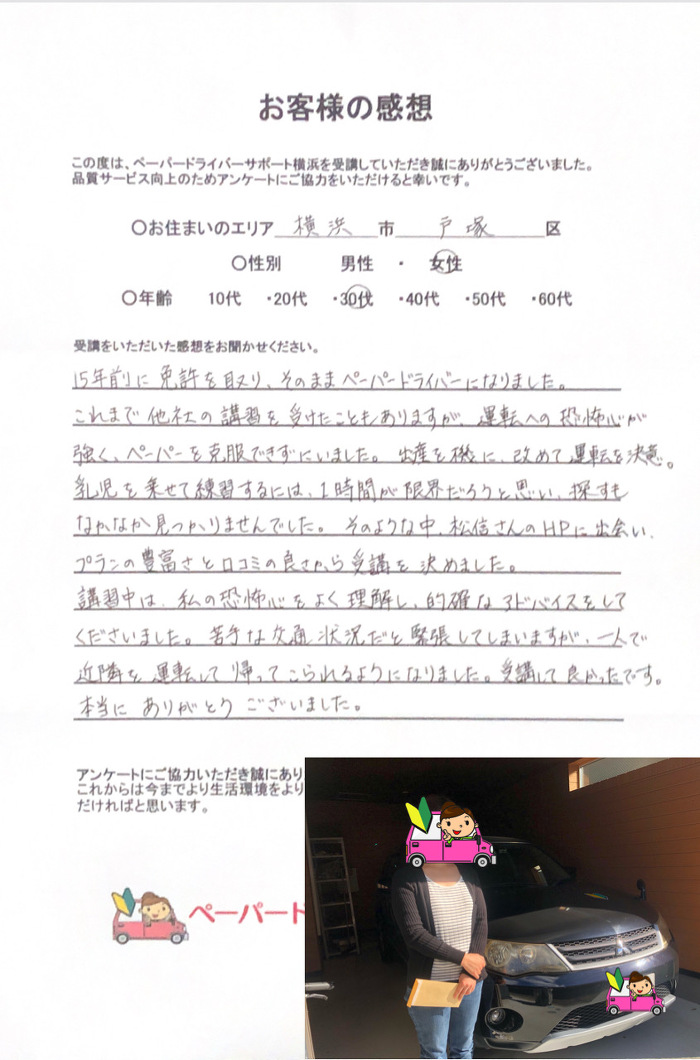 お客様の感想
この度は、ペーパードライバーサポート横浜を受講していただき誠にありがとうございました。
品質サービス向上のためアンケートにご協力をいただけると幸いです。
〇お住まいのエリア 横浜 市 戸塚 区
〇性別 男性 ・ 女性
〇年齢 10代 ・20代 ・30代 ・40代 ・50代 ・60代
受講をいただいた感想をお聞かせください。
15年前に免許を取り、そのままペーパードライバーになりました。
これまで他社の講習を受けたこともありますが、運転への恐怖心が
強く、ペーパーを克服できずにいました。出産を機に、改めて運転を決意。
乳児を乗せて練習するには、1時間が限界だろうと思い、探すも
なかなか見つかりませんでした。そのような中、松信さんのHPに出会い、
プランの豊富さと口コミの良さから受講を決めました。
講習中は、私の恐怖心をよく理解し、的確なアドバイスをして
くださいました。苦手な交通状況だと緊張してしまいますが、一人で
近隣を運転して帰ってこられるようになりました。受講して良かったです。
本当にありがとうございました。
アンケートにご協力いただき誠にあり
これからは今までより生活環境をより
だければと思います。
ペーパード